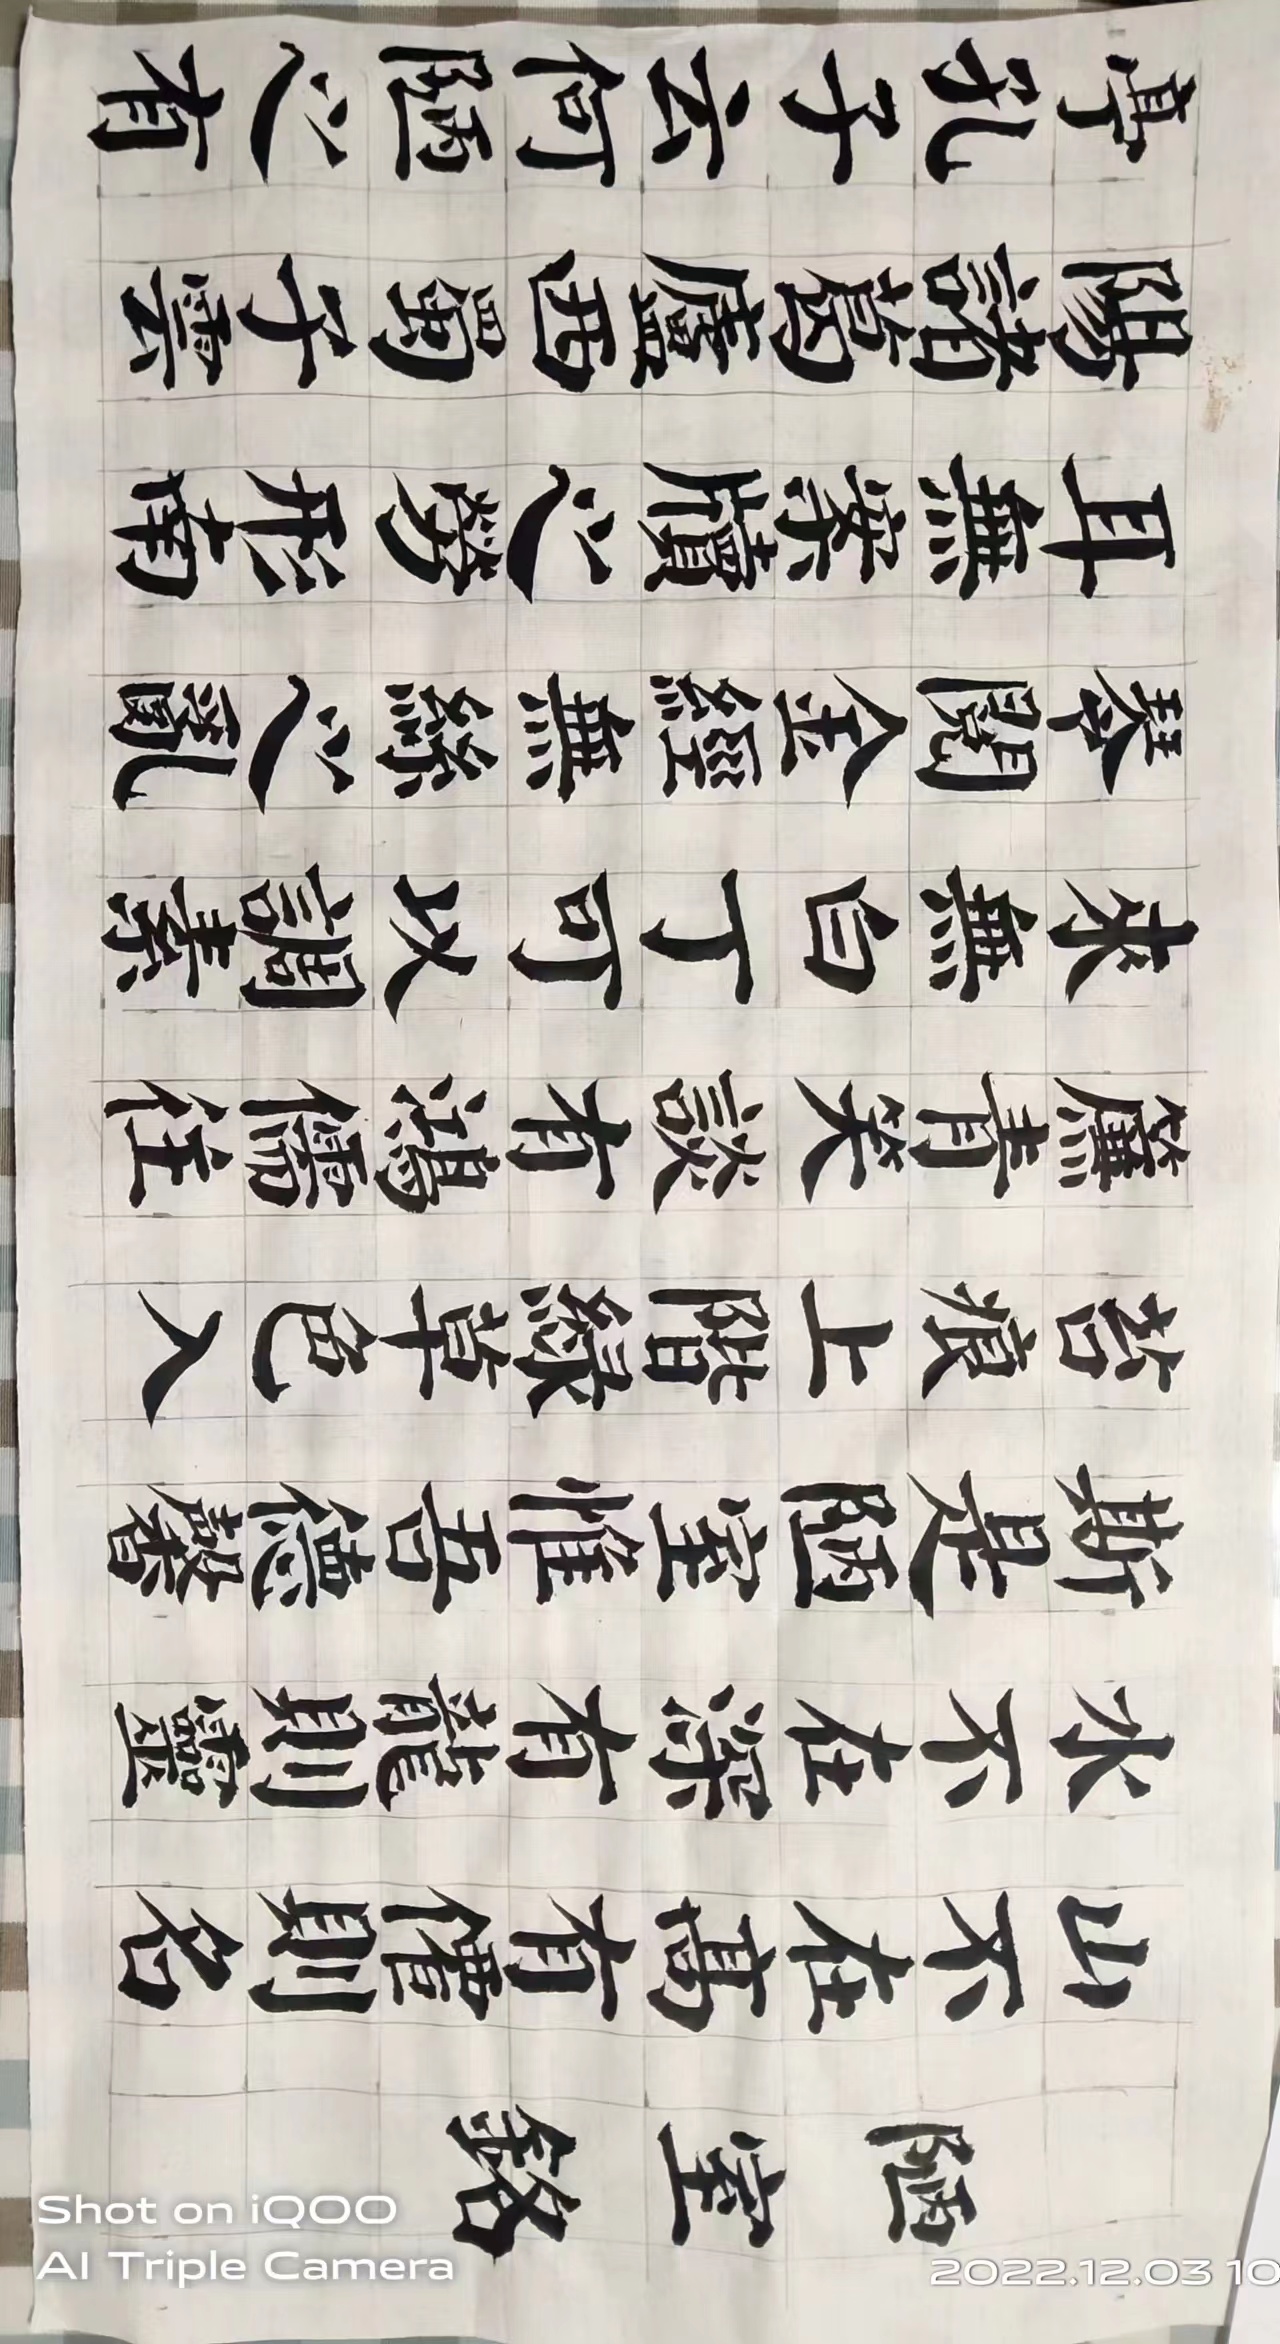 陋室銘
山不在高有僊則名
水不在深有龍則靈
斯是陋室惟吾德馨
苔痕上階綠草色入
簾青笑談有鴻儒往
來無白丁可以調素
琴閱金經無絲之亂
耳無案牘之勞形南
陽諸葛廬西蜀子雲
亭孔子云何陋之有
Shot on iQOO
AI Triple Camera
2022.12.03 10